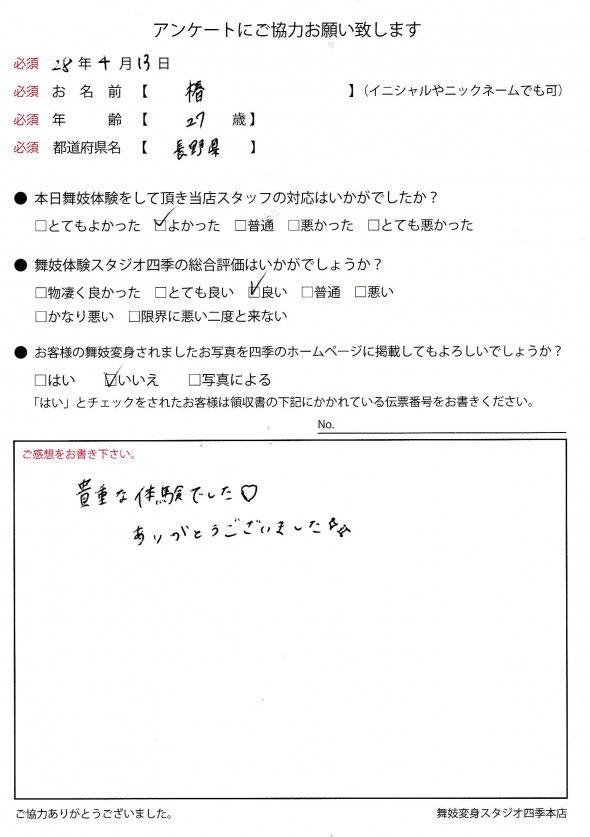 アンケートにご協力お願い致します
必須 28年4月13日
必須 お名前【 椿 】(イニシャルやニックネームでも可)
必須 年齢【 27 歳】
必須 都道府県名【 長野県 】
● 本日舞妓体験をして頂き当店スタッフの対応はいかがでしたか?
□とてもよかった ☑よかった □普通 □悪かった □とても悪かった
● 舞妓体験スタジオ四季の総合評価はいかがでしょうか?
□物凄く良かった □とても良い ☑良い □普通 □悪い
□かなり悪い □限界に悪い二度と来ない
● お客様の舞妓変身されましたお写真を四季のホームページに掲載してもよろしいでしょうか?
□はい ☑いいえ □写真による
「はい」とチェックをされたお客様は領収書の下記にかかれている伝票番号をお書きください。
No.
ご感想をお書き下さい。
貴重な体験でした♡
ありがとうございました☆☆
ご協力ありがとうございました。
舞妓変身スタジオ四季本店